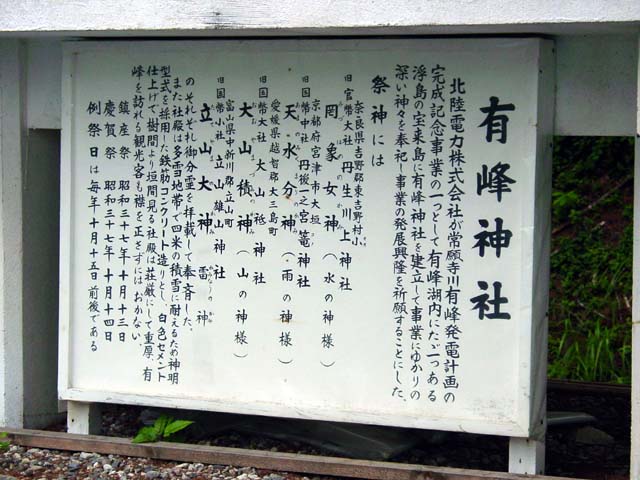 有峰神社
北陸電力株式会社が常願寺川有峰発電計画の
完成記念事業の一つとして有峰湖内にたゞ一つある
浮島の宝来島に有峰神社を建立して事業にゆかりの
深い神々を奉祀し事業の発展興隆を祈願することにした。
祭神には
奈良県吉野郡東吉野村小
旧官幣大社 丹生川上神社
罔象女神(水の神様)
京都府宮津市大垣
旧国幣中社 丹後一之宮篭神社
天水分神(雨の神様)
愛媛県越智郡大三島町
旧国幣大社 大山祗神社
大山積神(山の神様)
富山県中新川郡立山町
旧国幣小社 立山雄山神社
立山大神 雷神
のそれぞれ御分霊を拝載して奉斉した。
また社殿は多雪地帯で四米の積雪に耐えるため神明
型式を採用した鉄筋コンクリート造りとし、白色セメント
仕上げで樹間より垣間見る社殿は荘厳にして重厚、有
峰を訪れる観光客も襟を正さずにはおかない。
鎮座祭 昭和三十七年十月十三日
慶賀祭 昭和三十七年十月十四日
例祭日は毎年十月十五日前後である